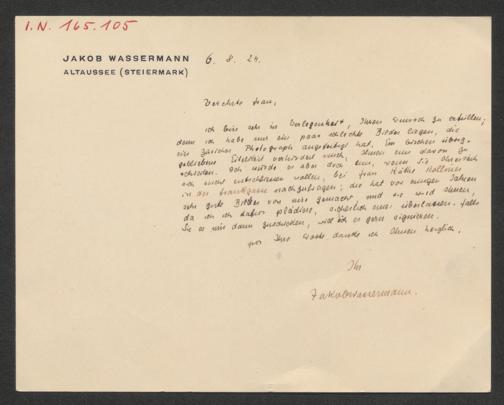 I.N. 165.105
JAKOB WASSERMANN
ALTAUSSEE (STEIERMARK)
6. 8. 24.
Verehrte Frau,
ich bin sehr in Verlegenheit, Ihren Wunsch zu erfüllen;
denn ich habe nur ein paar schlechte Bilder liegen, die
ein Züricher Photograph angefertigt hat. Ein bischen übrig-
gebliebene Eitelkeit verhindert mich, Ihnen eins davon zu
schicken. Ich würde es aber doch tun, wenn Sie
sich nicht entschliessen wollen, bei Frau
in der nachzufragen; die hat vor einigen Jahren
sehr gute Bilder von mir gemacht und sie wird Ihnen,
da ich ich dafür plädiere, sicherlich eins überlassen. Falls
Sie es mir dann zuschicken, will ich es gern signieren.
Für Ihre Worte danke ich Ihnen herzlich.
Ihr
JakobWassermann.